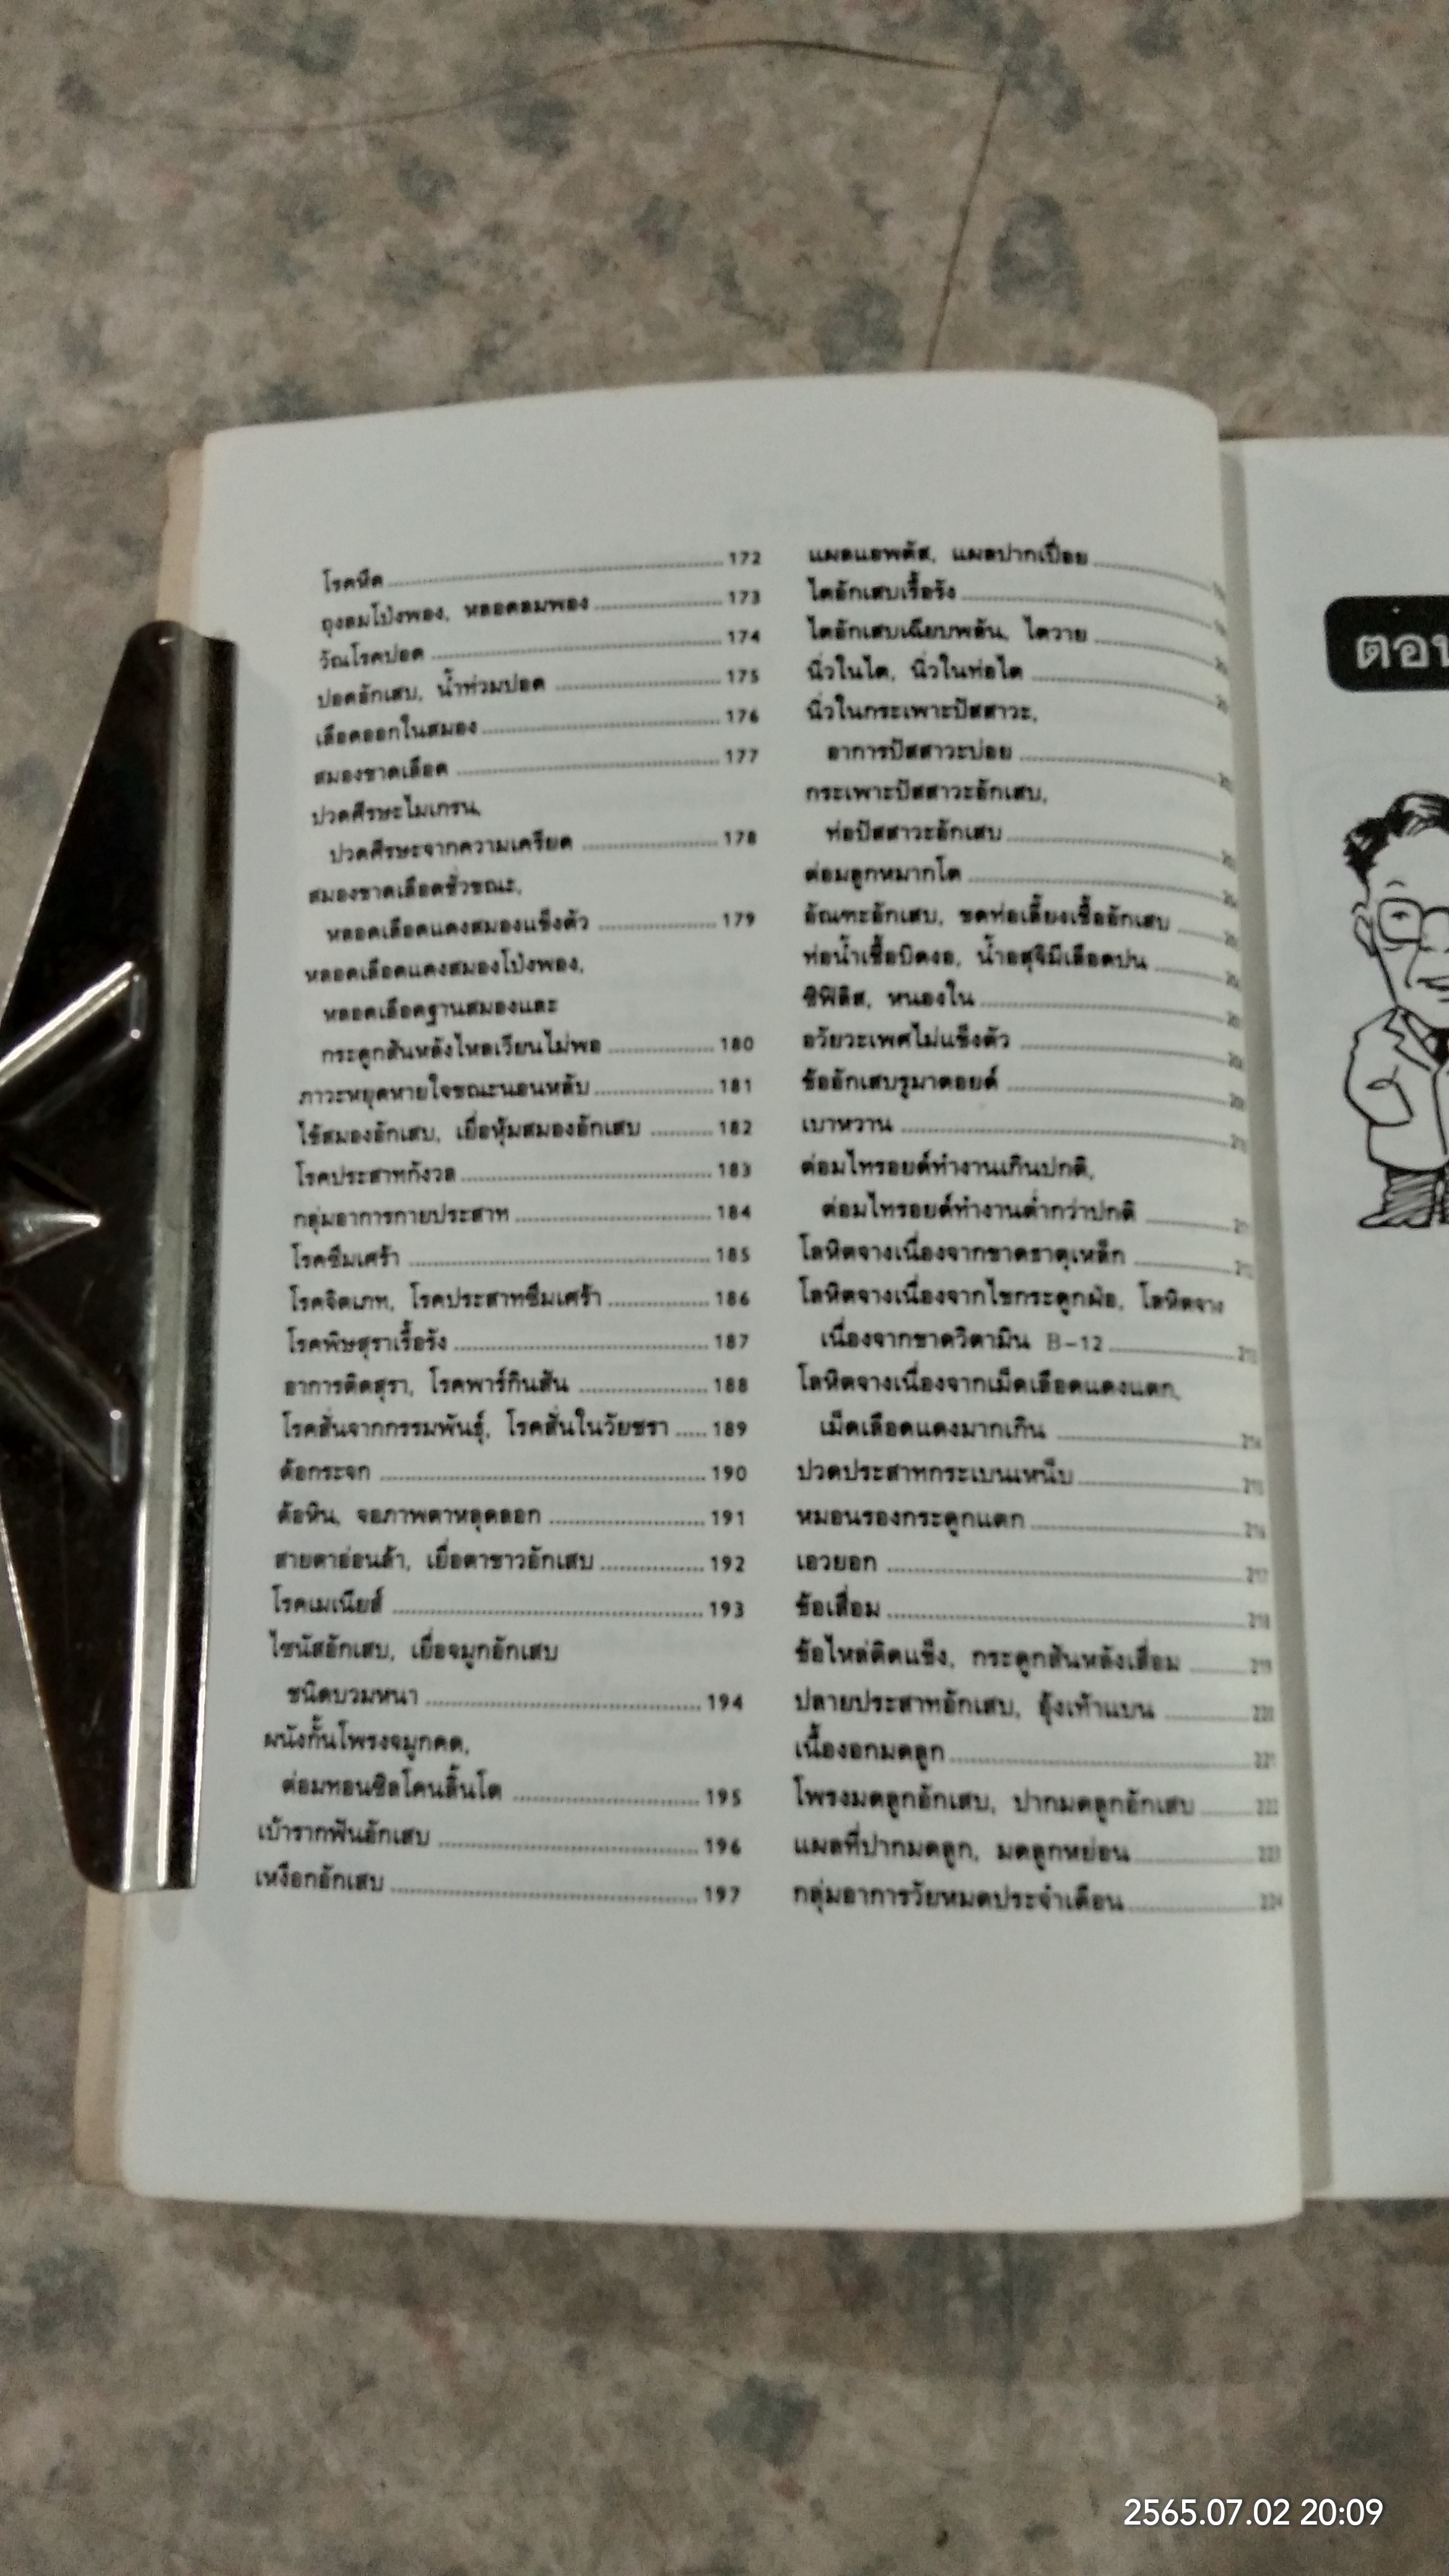 โรคหืด 172
ถุงลมโป่งพอง, หลอดลมพอง 173
วัณโรคปอด 174
ปอดอักเสบ, น้ำท่วมปอด 175
เลือดออกในสมอง 176
สมองขาดเลือด 177
ปวดศีรษะไมเกรน,
ปวดศีรษะจากความเครียด 178
สมองขาดเลือดชั่วขณะ,
หลอดเลือดแดงสมองแข็งตัว 179
หลอดเลือดแดงสมองโป่งพอง,
หลอดเลือดฐานสมองและ
กระดูกสันหลังไหลเวียนไม่พอ 180
ภาวะหยุดหายใจขณะนอนหลับ 181
ไข้สมองอักเสบ, เยื่อหุ้มสมองอักเสบ 182
โรคประสาทกังวล 183
กลุ่มอาการกายประสาท 184
โรคซึมเศร้า 185
โรคจิตเภท, โรคประสาทซึมเศร้า 186
โรคพิษสุราเรื้อรัง 187
อาการติดสุรา, โรคพาร์กินสัน 188
โรคสั่นจากกรรมพันธุ์, โรคสั่นในวัยชรา 189
ต้อกระจก 190
ต้อหิน, จอภาพตาหลุดลอก 191
สายตาอ่อนล้า, เยื่อตาขาวอักเสบ 192
โรคเมเนียส์ 193
ไซนัสอักเสบ, เยื่อจมูกอักเสบ
ชนิดบวมหนา 194
ผนังกั้นโพรงจมูกคด,
ต่อมทอนซิลโคนลิ้นโต 195
เบ้ารากฟันอักเสบ 196
เหงือกอักเสบ 197
แผลแอพตัส, แผลปากเปื่อย
ไตอักเสบเรื้อรัง
ไตอักเสบเฉียบพลัน, ไตวาย
นิ่วในไต, นิ่วในท่อไต
นิ่วในกระเพาะปัสสาวะ,
อาการปัสสาวะบ่อย
กระเพาะปัสสาวะอักเสบ,
ท่อปัสสาวะอักเสบ
ต่อมลูกหมากโต
อัณฑะอักเสบ, ขดท่อเลี้ยงเชื้ออักเสบ
ท่อน้ำเชื้อบิดงอ, น้ำอสุจิมีเลือดปน
ซิฟิลิส, หนองใน
อวัยวะเพศไม่แข็งตัว
ข้ออักเสบรูมาตอยด์
เบาหวาน
ต่อมไทรอยด์ทำงานเกินปกติ,
ต่อมไทรอยด์ทำงานต่ำกว่าปกติ
โลหิตจางเนื่องจากขาดธาตุเหล็ก
โลหิตจางเนื่องจากไขกระดูกฝ่อ, โลหิตจาง
เนื่องจากขาดวิตามิน B-12
โลหิตจางเนื่องจากเม็ดเลือดแดงแตก,
เม็ดเลือดแดงมากเกิน 214
ปวดประสาทกระเบนเหน็บ 215
หมอนรองกระดูกแตก 216
เอวยอก 217
ข้อเสื่อม 218
ข้อไหล่ติดแข็ง, กระดูกสันหลังเสื่อม 219
ปลายประสาทอักเสบ, อุ้งเท้าแบน 220
เนื้องอกมดลูก 221
โพรงมดลูกอักเสบ, ปากมดลูกอักเสบ 222
แผลที่ปากมดลูก, มดลูกหย่อน 223
กลุ่มอาการวัยหมดประจำเดือน 224
2565.07.02 20:09